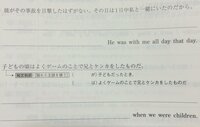 彼がその事故を目撃したはずがない。その日は1日中私と一緒にいたのだから。
He was with me all day that day.
子どもの頃はよくゲームのことで兄とケンカをしたものだ。
が）子どもだったとき、
は）よくゲームのことで兄とケンカをしたものだ
when we were children.